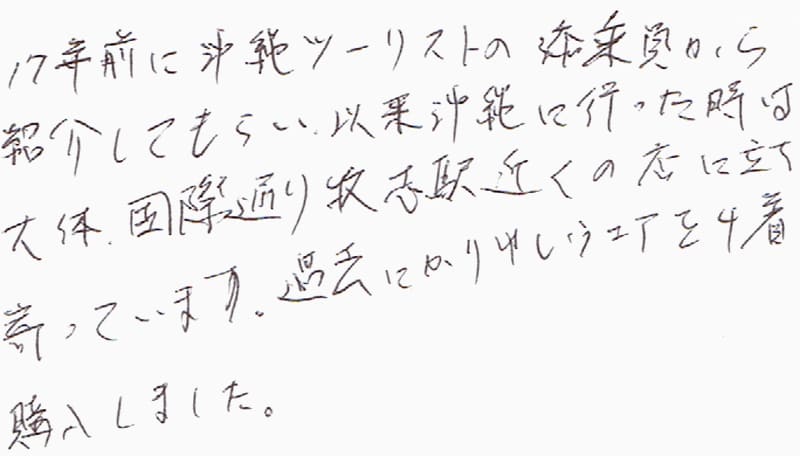 17年前に沖縄ツーリストの添乗員から
紹介してもらい、以来沖縄に行った時は
大体、国際通り牧志駅近くの店に立ち
寄っています。過去にかりゆしウェアを4着
購入しました。